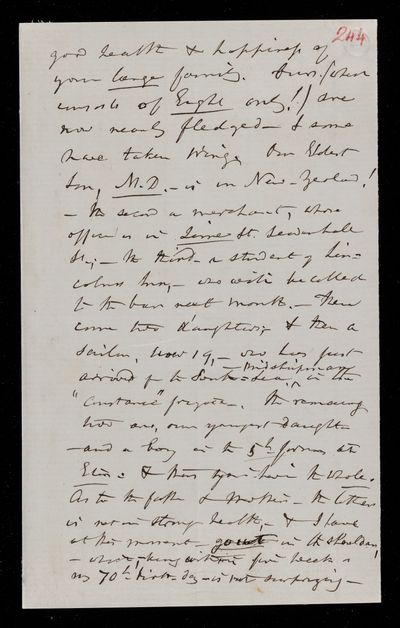 244
good health & happiness of
your large family. Ours (which
consists of Eight only!) are
now nearly fledged – & some
have taken wing. Our Eldest
Son, M.D. – is in New-Zealand!
– the second a merchant, whose
office is in Lime St. Leadenhall
St; – the third a student of Lin=
colns Inn, – who will be called
to the bar next month. – Then
come two daughters; & then a
Sailor, now 19, – who has just
arrived fr the South=Sea, midshipman in the
"Constance" frigate. The remaining
two are, our youngest daughter
– and a boy in the 5th form at
Eton: & thus you have the whole.
As to the father & Mother – the latter
is not in strong health, – & I have
at this moment gout in the shoulder,
– which, being within five weeks of
my 70th birth-day – is not surprising –